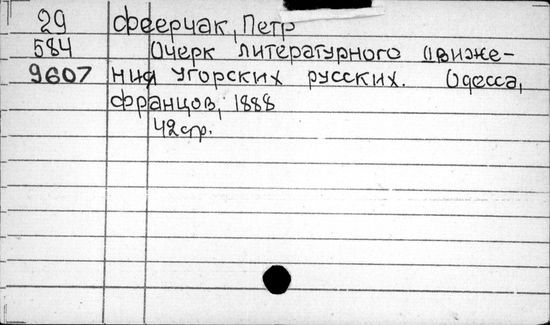 29 Феерчак, Петр
584 Очерк литературного движе-
9607 ния угорских русских. Одесса,
Францов, 1888
42 стр.